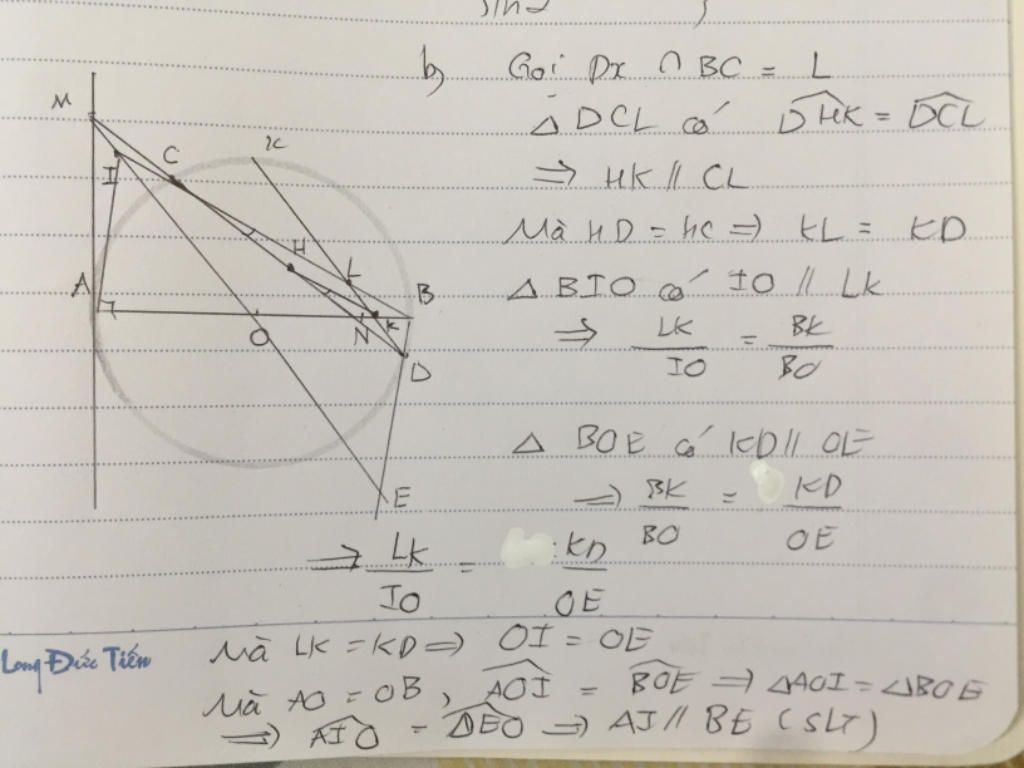 b) Gọi Dx ∩ BC = L
△ DCL có DHK = DCL
=> HK // CL
Mà HD = HC => KL = KD
△ BIO có IO // LK
=> LK/IO = BK/BO
△ BOE có KD // OE
=> BK/BO = KD/OE
=> LK/IO = KD/OE
Mà LK = KD => OI = OE
Mà AO = OB, AOI = BOE => △AOI = △BOE
=> AIO = DEO => AI // BE (SLT)
Long Đức Tiến
M
I
C
x
H
L
A
B
O
N
K
D
E